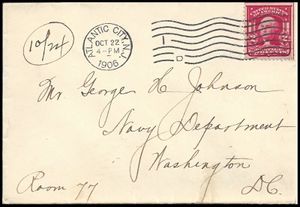 10/24
ATLANTIC CITY, N.J.
OCT 22
4-PM
1906
1
D
Mr. George H Johnson
Navy Department
Washington
Room 77
D.C.